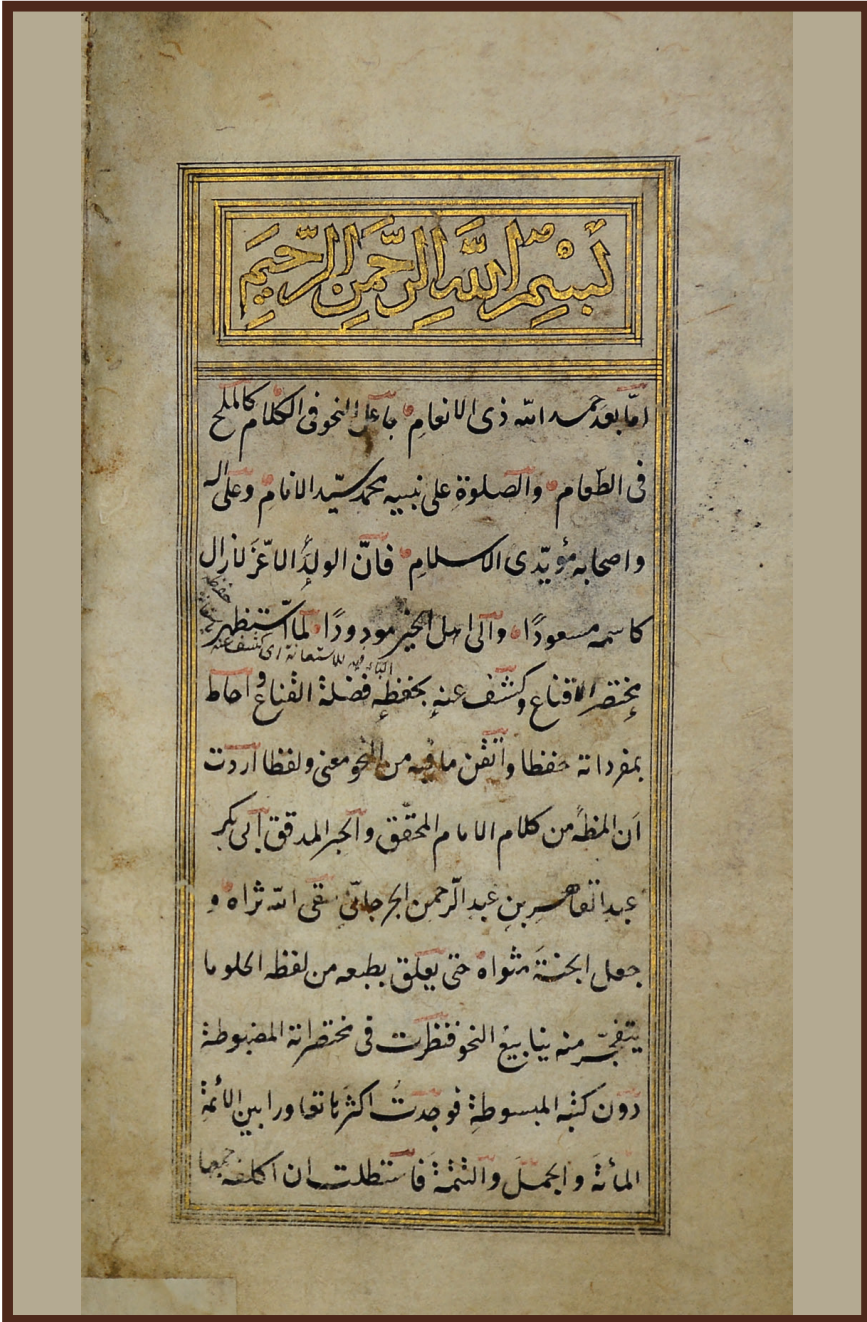 بسم الله الرحمن الرحيم
امّا بعد حمد الله ذى الانعام جاعل النحو فى الكلام كالملح
فى الطّعام والصلوة على نبيه محمد سيّد الانام وعلى اله
واصحابه مؤيّدى الاسلام فانّ الولد الاعزّ لازال
كاسمه مسعودًا والى اهل الخير مودودًا لما استظهر
مختصر الاقناع وكشف عنه بحفظه فضلة القناع و احاط
بمفرداته حفظا واتقن ما فيه من النحو معنى ولفظا اردت
ان المظه من كلام الامام المحقّق والحبر المدقق ابى بكر
عبد القاهر بن عبد الرّحمن الجرجانىّ سقى الله ثراه و
جعل الجنة مثواه حتى يعلق بطبعه من لفظه الحلو ما
يتفجّر منه ينابيع النحو فنظرت فى مختصراته المضبوطة
دون كتبه المبسوطة فوجدت اكثرها تعاورا بين الائمة
المائة والجمل والتتمة فاستطلت ان اكلفه جمعا